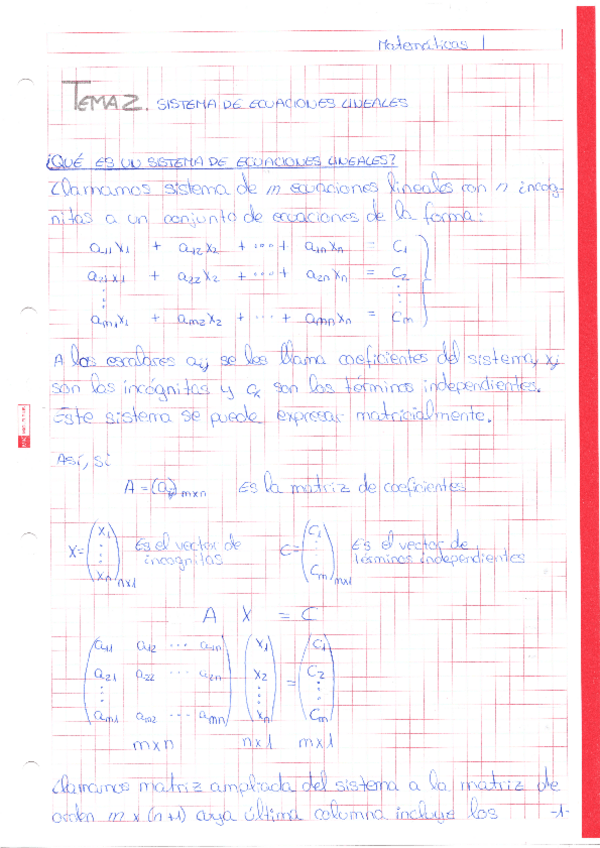 Matemáticas |
TEMA 2. SISTEMA DE ECUACIONES LINEALES
¿QUÉ ES UN SISTEMA DE ECUACIONES LINEALES?
Llamamos sistema de m ecuaciones lineales con n incóg-
nitas a un conjunto de ecuaciones de la forma:
a₁₁x₁ + a₁₂x₂ + ... + a₁ₙxₙ = c₁
a₂₁x₁ + a₂₂x₂ + ... + a₂ₙxₙ = c₂
⋮ ⋮
aₘ₁x₁ + aₘ₂x₂ + ... + aₘₙxₙ = cₘ
A los escalares aᵢⱼ se les llama coeficientes del sistema, xⱼ
son las incógnitas y cₖ son los términos independientes.
Este sistema se puede expresar matricialmente.
Así, si
A = (aᵢⱼ)ₘₓₙ Es la matriz de coeficientes
X = (x₁ ⋮ xₙ)ₙₓ₁ Es el vector de incognitas C = (c₁ ⋮ cₘ)ₘₓ₁ Es el vector de términos independientes
A X = C
(a₁₁ a₁₂ ... a₁ₙ) (x₁) (c₁)
(a₂₁ a₂₂ ... a₂ₙ) (x₂) = (c₂)
⋮ ⋮ ⋮
(aₘ₁ aₘ₂ ... aₘₙ) (xₙ) (cₘ)
mxn nx1 mx1
Llamamos matriz ampliada del sistema a la matriz de
orden m x (n+1) cuya última columna incluye los
-1-